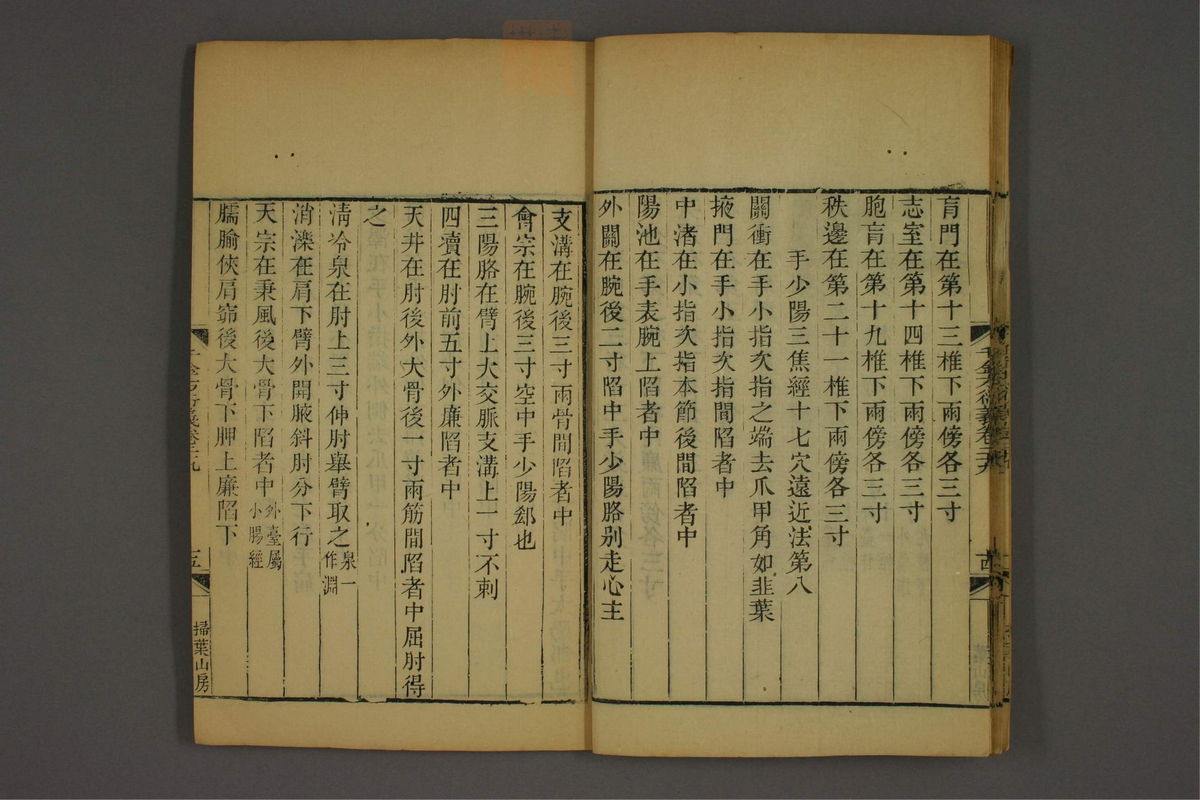 肓門在第十三椎下兩傍各三寸
志室在第十四椎下兩傍各三寸
胞肓在第十九椎下兩傍各三寸
秩邊在第二十一椎下兩傍各三寸
手少陽三焦經十七穴遠近法第八
關衝在手小指次指之端去爪甲角如韭葉
掖門在手小指次指間陷者中
中渚在小指次指本節後間陷者中
陽池在手表腕上陷者中
外關在腕後二寸陷中手少陽胳別走心主
支溝在腕後三寸兩骨間陷者中
會宗在腕後三寸空中手少陽郄也
三陽胳在臂上大交脈支溝上一寸不刺
四瀆在肘前五寸外廉陷者中
天井在肘後外大骨後一寸兩筋間陷者中屈肘得
之
淸冷泉在肘上三寸伸肘舉臂取之泉一作淵
消濼在肩下臂外開腋斜肘分下行
天宗在秉風後大骨下陷者中外臺屬小腸經
臑腧俠肩窌後大骨下胛上廉陷下
千金方衍義卷二十九
五
掃葉山房